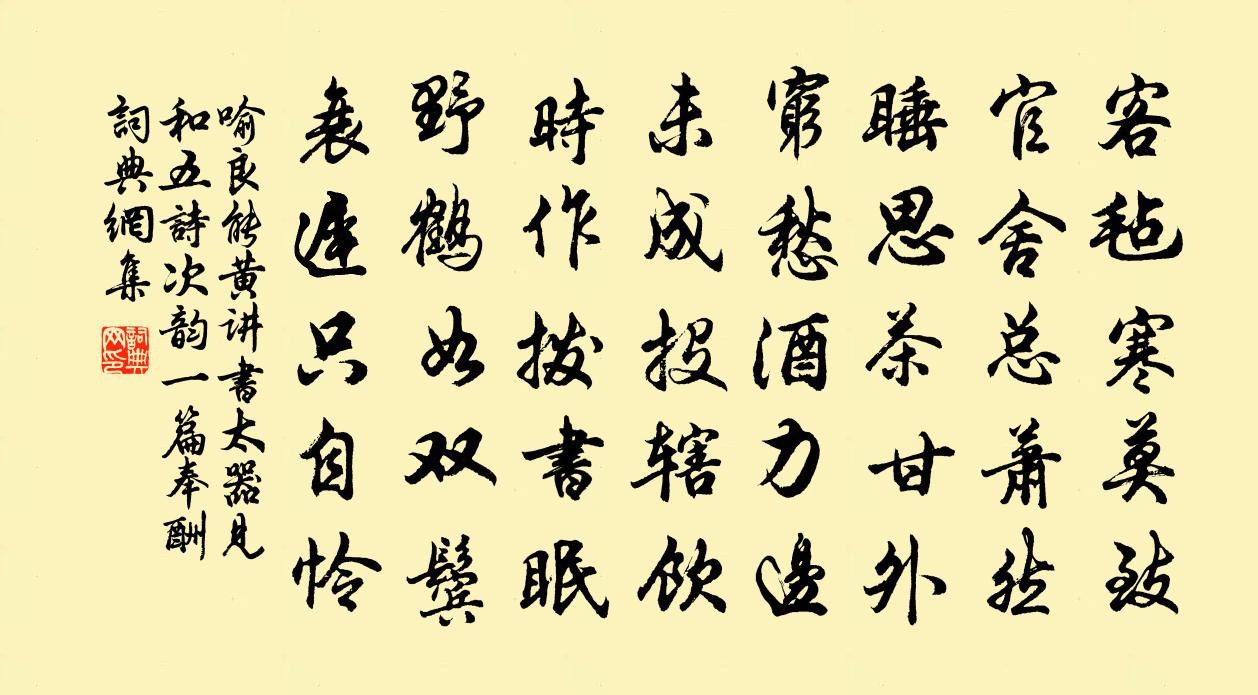 客毡寒莫致
官舍总萧然
睡思茶甘外
穷愁酒力边
未成投辖饮
時作拨書眠
野鶴如双鬓
衰遲只自怜
喻良能黄讲書太器見
和五詩次韵一篇奉酬
詞典網集